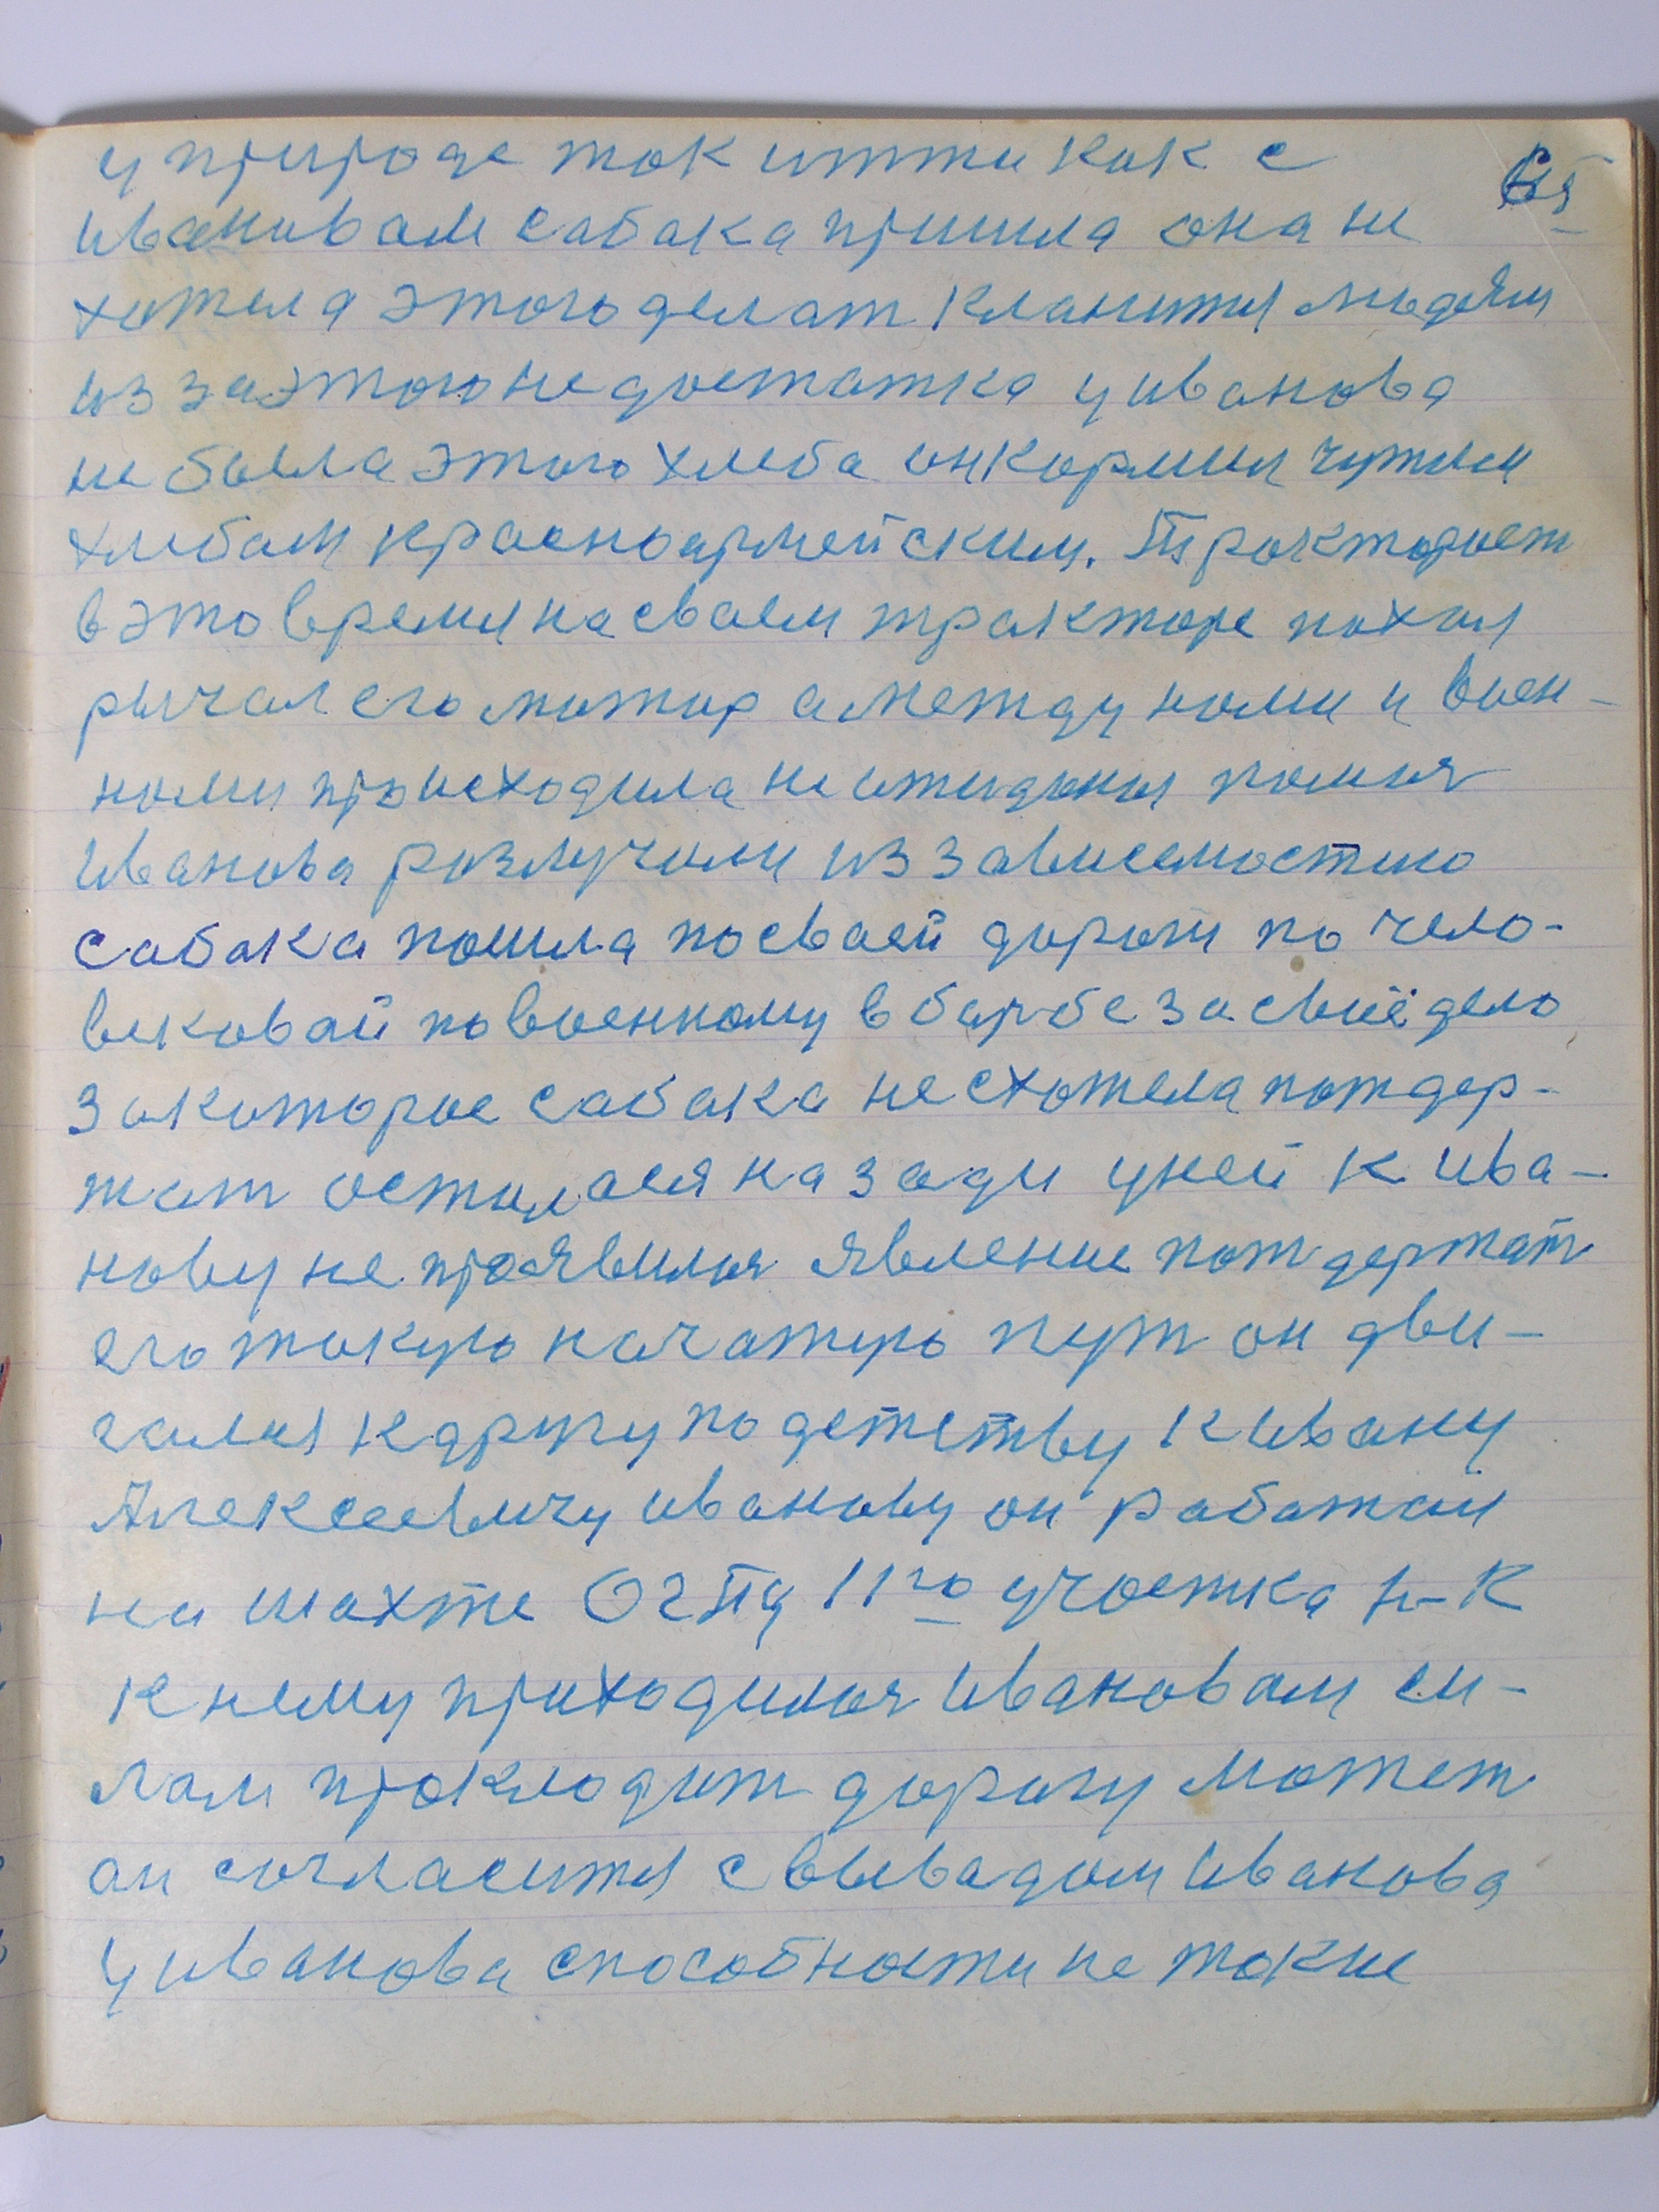 у природе так итти как с
ивановам сабака пришла она не
хотела этого делат кланится людям
из за этого недостатка у иванова
не была этого хлеба он кормил чужим
хлебам красноармейским. Тракторист
в это время на сваем тракторе пахал
рычал его мотор а между нами и воен-
ными происходила не ожиданая
Иванова разлучили из зависемостию
сабака пошла по сваей дороги по чело-
вековай по военному в барбе за своё дело
за которое сабака не схотела потдер-
жат осталася назади у ней к ива-
нову не проявился явление потдержат
его такую начатую пут он дви-
гался к другу по детству к ивану
Алексеевичу иванову он работал
на шахте ОГПУ 11го участка н-к
к нему приходился Ивановам си-
лам прокладит дорогу может
он согласится с вывадом Иванова
у иванова способности не такие